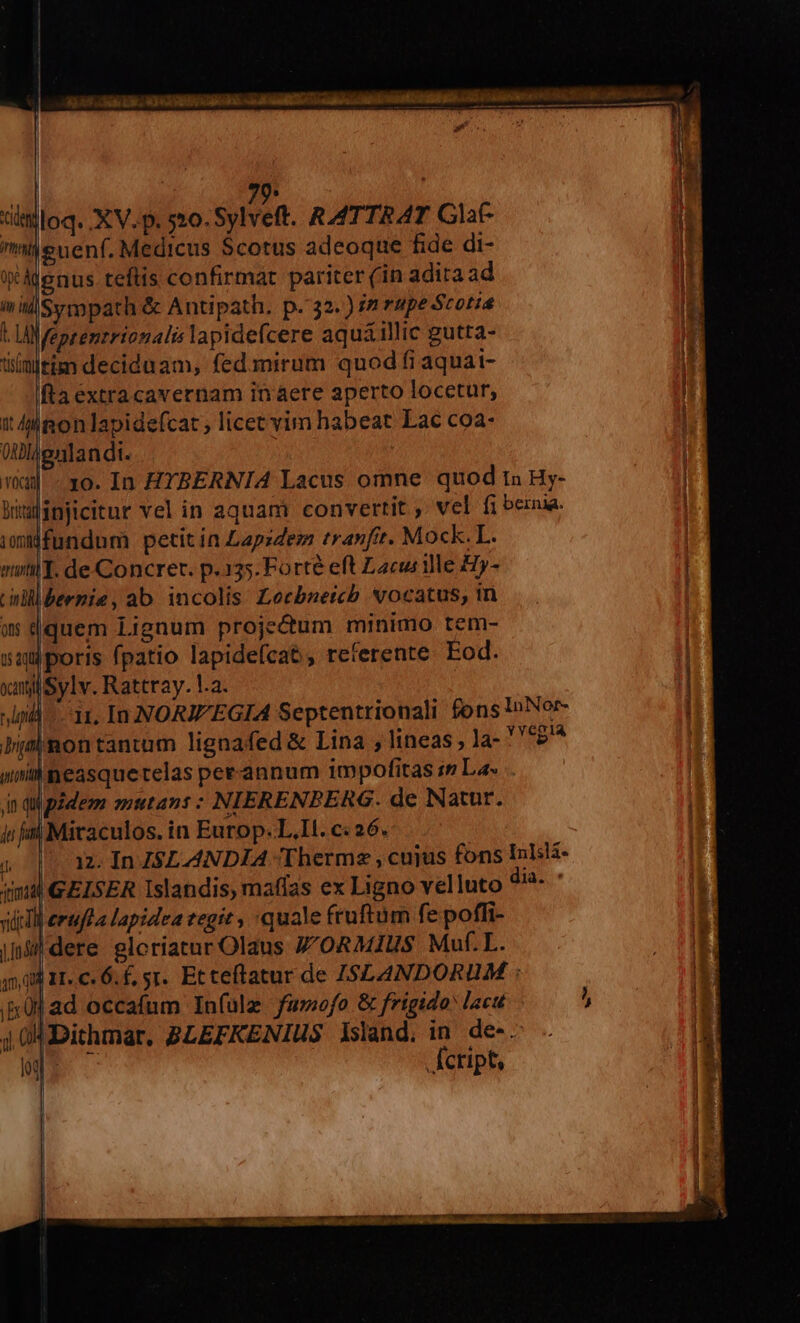 79.
loq. XV. p. 520. Sylveſt. RATTRAT Glaſ-
guenſ. Medicus Scotus adeoque fide di-
gnus teſtis confirmat pariter (in adita ad
Sympath & Antipath. p. 32.) in rupe Scotiæ
ſeptentrionalis lapideſcere aquã illic gutta-
tim deciduam, ſed mirum quod ſi aqua i-
ſta extra cavernam in aere aperto locetur,
non lapideſcat, licet vim habeat Lac coa-
gulandi.
10. In HYBERNIA Lacus omne quod in Hy-
injicitur vel in aquam convertit, vel ſi bernia.
fundum petit in Lapidem tranſit. Mock. L.
I. de Concret. p. 135. Fortè eſt Lacus ille Hy-
berniæ, ab incolis Lochneich vocatus, in
quem Lignum projectum minimo tem-
poris ſpatio lapideſcat, referente Eod.
Sylv. Rattray. l. a.
11. In NORWEGIA Septentrionali fons In Nor-
non tantum ligna ſed & Lina, lineas, la- vvegia
neasque telas per annum impoſitas in La-
pidem mutans: NIERENBERG. de Natur.
Miraculos. in Europ. L. II. c. 26.
12. In ISLANDIA Thermæ, cujus fons In Islã-
GEISER Islandis, maſſas ex Ligno vel luto dia.
cruſta lapidea tegit, quale fruſtum ſe poſſi-
dere gloriatur Olaus WORMIUS Muſ. L.
II. c. 6. f. 51. Et teſtatur de ISLANDORUM
ad occaſum Inſulæ fumoſo & frigido lacu
Dithmar. BLEFKENIUS Island. in de-
ſcript,